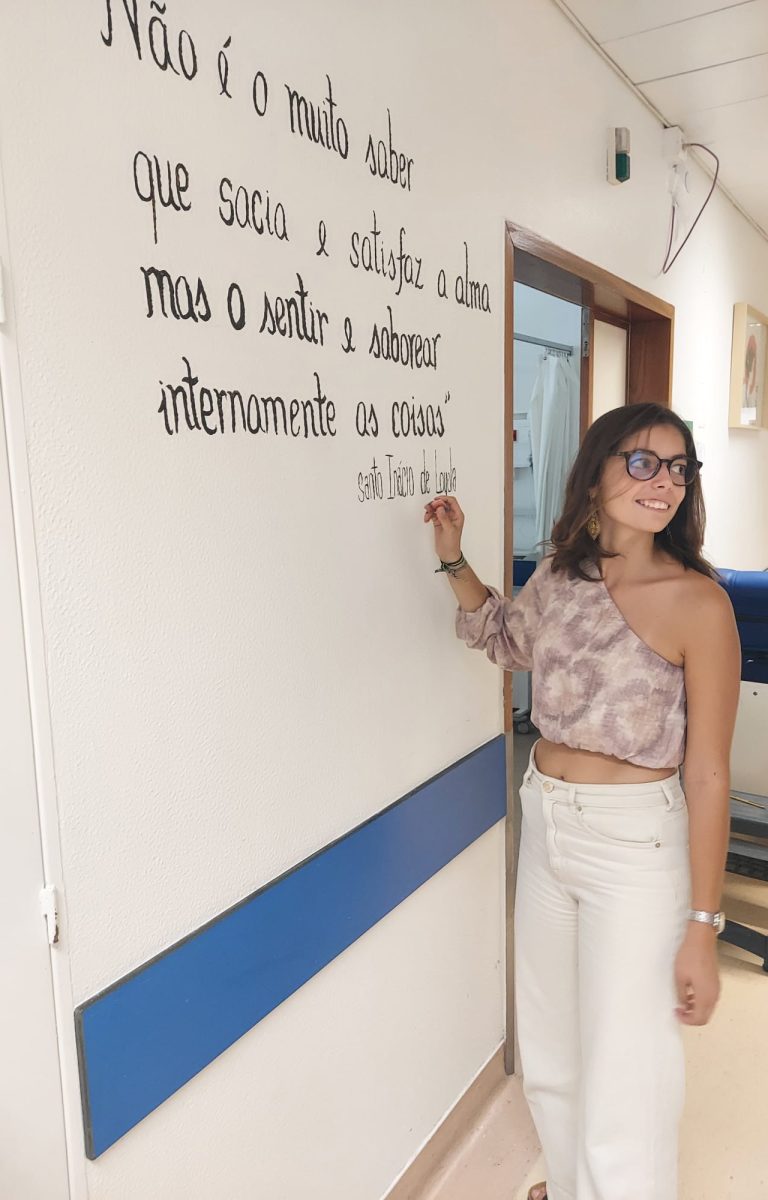 Não é o muito saber
que sacia e satisfaz a alma
mas o sentir e saborear
internamente as coisas"
Santo Inácio de Loyola